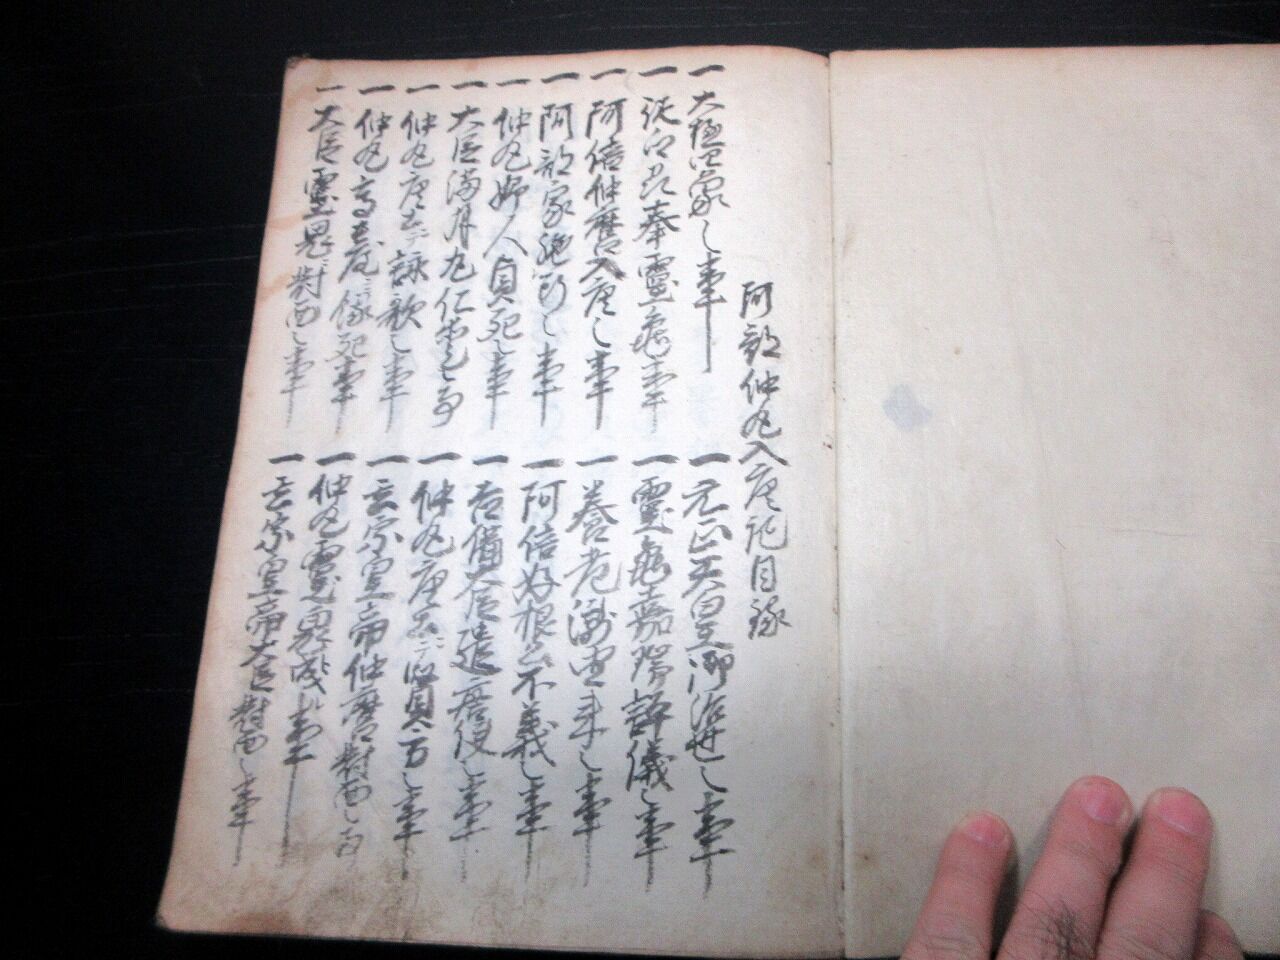 阿部仲丸入唐記目録
一 大極四象之事
一 元正天皇御治世之事
一 従白亀奉霊亀事
一 霊亀嘉瑞詳儀之事
一 阿倍仲麿入唐之事
一 養老瀧由来之事
一 阿部家絶断之事
一 阿倍好根公不義之事
一 仲丸婦人貞死之事
一 吉備大臣遣唐使之事
一 大臣満月丸仁愛之事
一 仲丸唐土ニテ詠歌之事
一 玄宗皇帝仲麿対面之事
一 仲丸高楼ニ餓死事
一 仲丸霊鬼成ル事
一 大臣霊鬼ニ対面之事
一 玄宗皇帝大臣対面之事